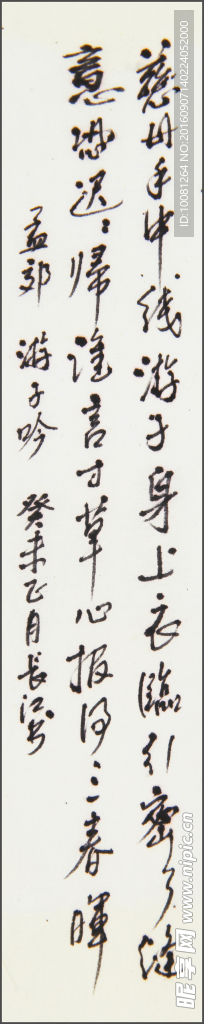 慈母手中线游子身上衣臨行密々缝
意恐迟々歸谁言寸草心报得三春暉
孟郊 游子吟 癸未正月長江书
ID:10081264 NO:20160907140224052000
昵享网 www.nipic.cn